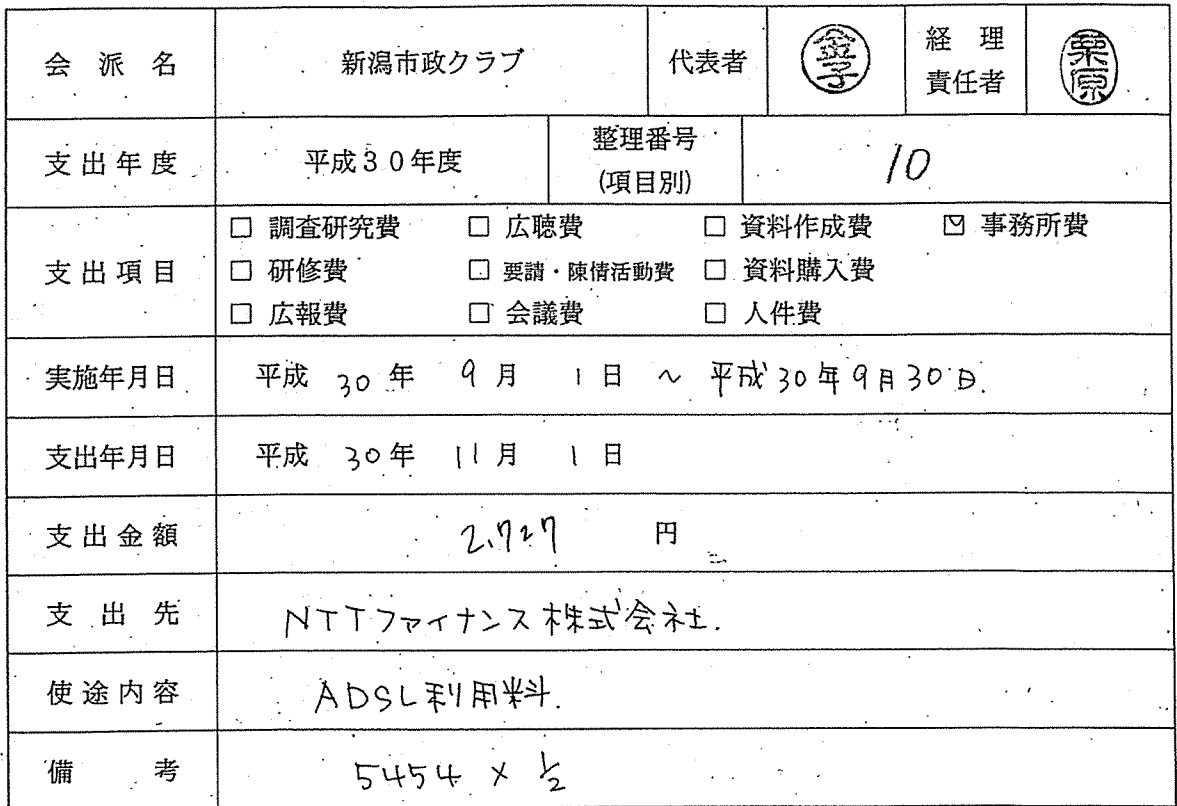 会派名 新潟市政クラブ 代表者 金子 経理責任者 栗原
支出年度 平成30年度 整理番号(項目別) 10
支出項目
□ 調査研究費 □ 広聴費 □ 資料作成費 ☑ 事務所費
□ 研修費 □ 要請・陳情活動費 □ 資料購入費
□ 広報費 □ 会議費 □ 人件費
実施年月日 平成 30年 9月 1日 ~ 平成30年9月30日.
支出年月日 平成 30年 11月 1日
支出金額 2,727 円
支出先 NTTファイナンス株式会社.
使途内容 ADSL利用料.
備考 5454 × 1/2